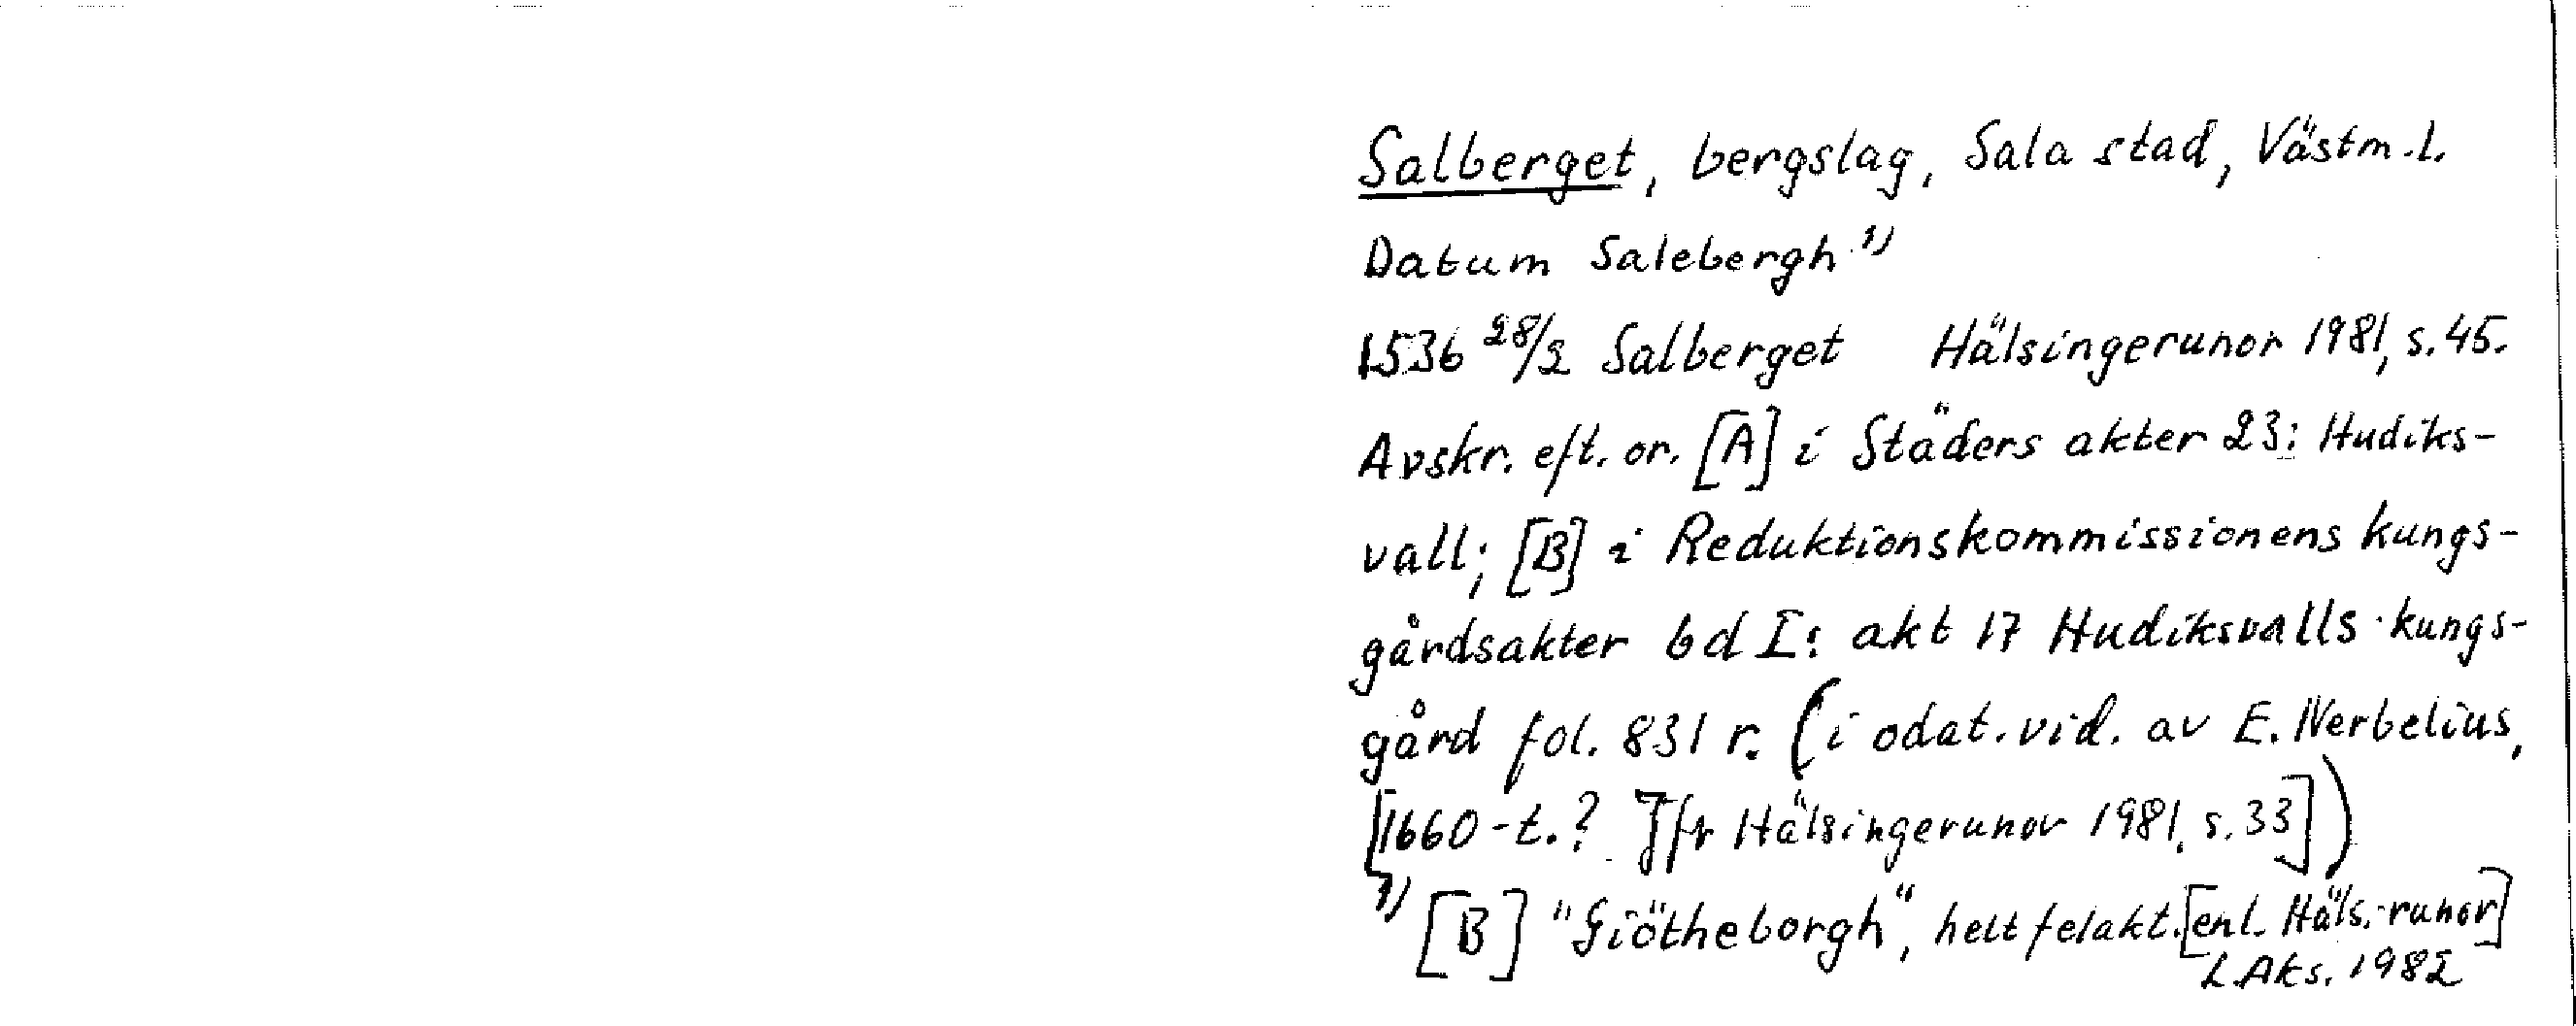 Salberget, bergslag, Sala stad, Västm.l.
Datum Salebergh 1)
1536 28/2 Salberget Hälsingerunor 1981, s. 45.
Avskr. eft. or. [A] i Städers akter 23: Hudiks-
vall; [B] i Reduktionskommissionens kungs-
gårdsakter bd I: akt 17 Hudiksvalls kungs-
gård fol. 831 r. (i odat. vid. av E. Nerbelius,
[1660-t.? Jfr Hälsingerunor 1981, s. 33])
1) [B] "Giötheborgh", helt felakt. [enl. Häls.-runor]
L Aks. 1982